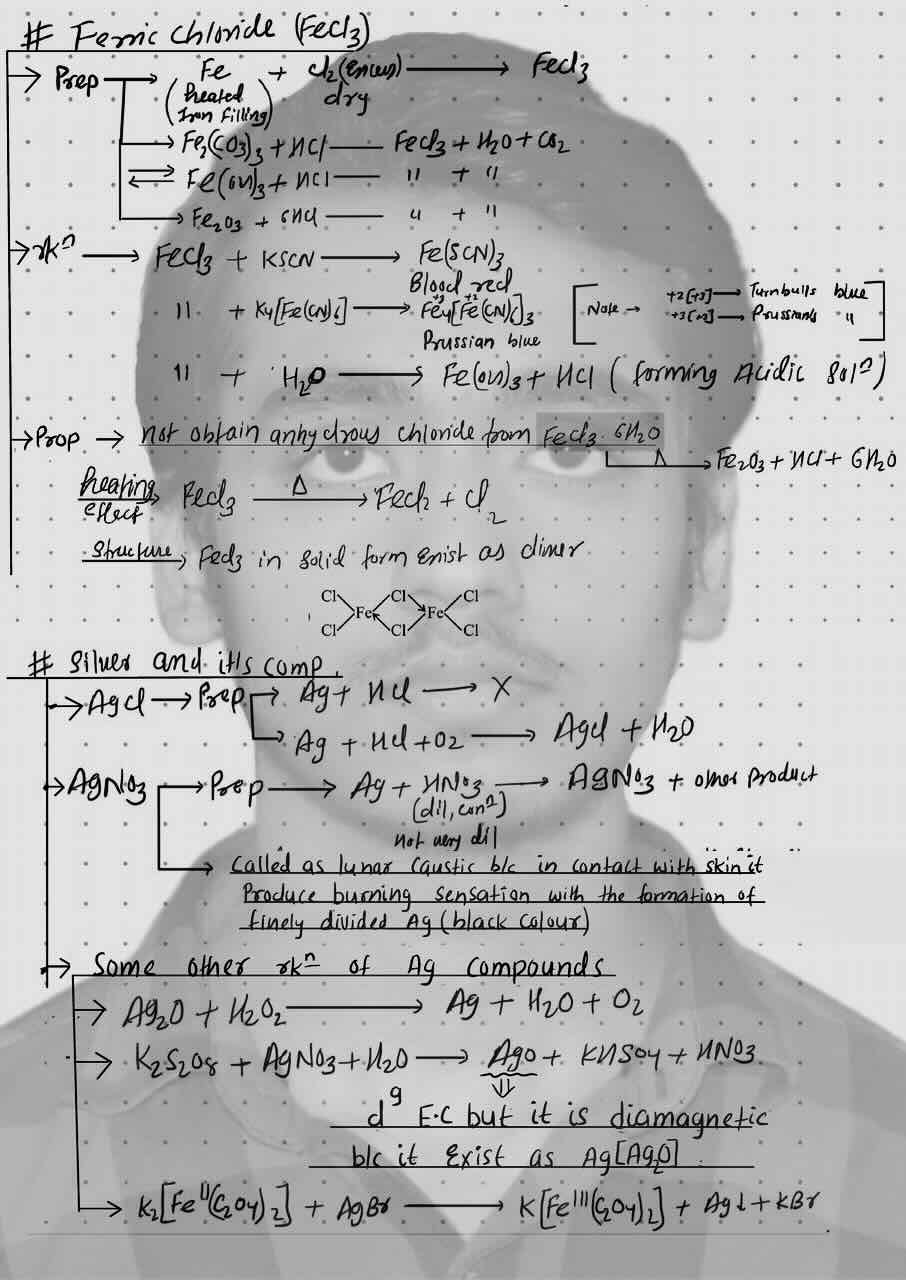 # Ferric chloride (FeCl3)
→ Prep → Fe + Cl2 (Excess) → FeCl3
(heated Iron filling) dry
→ Fe2(CO3)3 + HCl — FeCl3 + H2O + CO2
⇌ Fe(OH)3 + HCl — " + "
→ Fe2O3 + 6HCl — " + "
→ rkⁿ → FeCl3 + KSCN → Fe(SCN)3
Blood red
" + K4[Fe(CN)6] → Fe4[Fe(CN)6]3
+3 +2
Prussian blue
[Note → +2[+3] → Turnbulls blue
+3[+2] → Prussians "]
" + H2O → Fe(OH)3 + HCl ( forming Acidic Solⁿ)
→ Prop → not obtain anhydrous chloride from FeCl3. 6H2O
Δ → Fe2O3 + HCl + 6H2O
heating effect → FeCl3 Δ → FeCl2 + Cl2
Structure → FeCl3 in solid form Exist as dimer
Cl Cl Cl
Fe Fe
Cl Cl Cl
# Silver and it's comp.
→ AgCl → Prep → Ag + HCl → X
→ Ag + HCl + O2 → AgCl + H2O
→ AgNO3 → Prep → Ag + HNO3 → AgNO3 + other Product
(dil, conⁿ)
not very dil
→ Called as lunar caustic b/c in contact with skin it
Produce burning sensation with the formation of
finely divided Ag (black colour)
→ Some other rkⁿ of Ag compounds
→ Ag2O + H2O2 → Ag + H2O + O2
→ K2S2O8 + AgNO3 + H2O → AgO + KHSO4 + HNO3
⇓
d⁹ E.C but it is diamagnetic
b/c it Exist as Ag[AgO2]
→ K2[Feᴵᴵ(C2O4)2] + AgBr → K[Feᴵᴵᴵ(C2O4)2] + Ag↓ + KBr